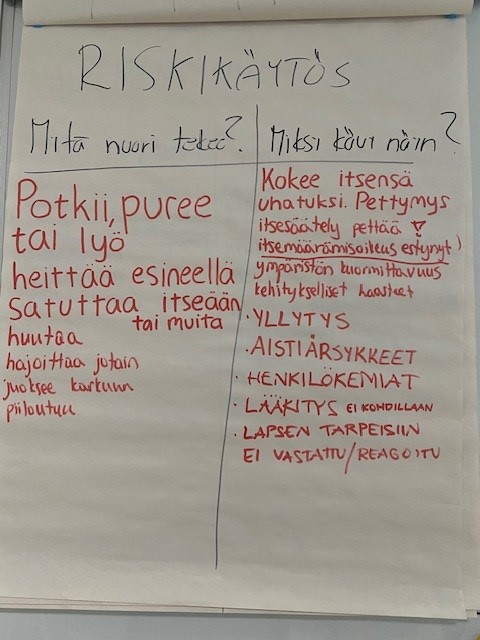 RISKIKÄYTÖS
Mitä nuori tekee?
Potkii, puree
tai lyö
heittää esineellä
satuttaa itseään
tai muita
huutaa
hajoittaa jotain
juoksee karkuun
piiloutuu
Miksi kävi näin?
Kokee itsensä
uhatuksi. Pettymys
itsesäätely pettää
itsemääräämisoikeus estynyt)
ympäristön kuormittavuus
kehitykselliset haasteet
·YLLYTYS
·AISTIÄRSYKKEET
·HENKILÖKEMIAT
·LÄÄKITYS EI KOHDILLAAN
·LAPSEN TARPEISIIN
EI VASTATTU/REAGOITU